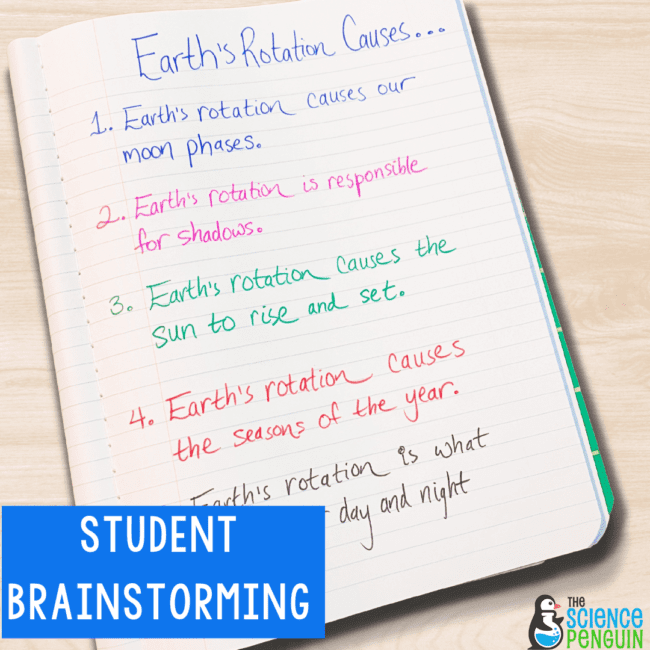 Earth's Rotation Causes...
1. Earth's rotation causes our
moon phases.
2. Earth's rotation is responsible
for shadows.
3. Earth's rotation causes the
sun to rise and set.
4. Earth's rotation causes
the seasons of the year.
Earth's rotation is what
day and night
STUDENT
BRAINSTORMING
THE
SCIENCE
PENGUIN